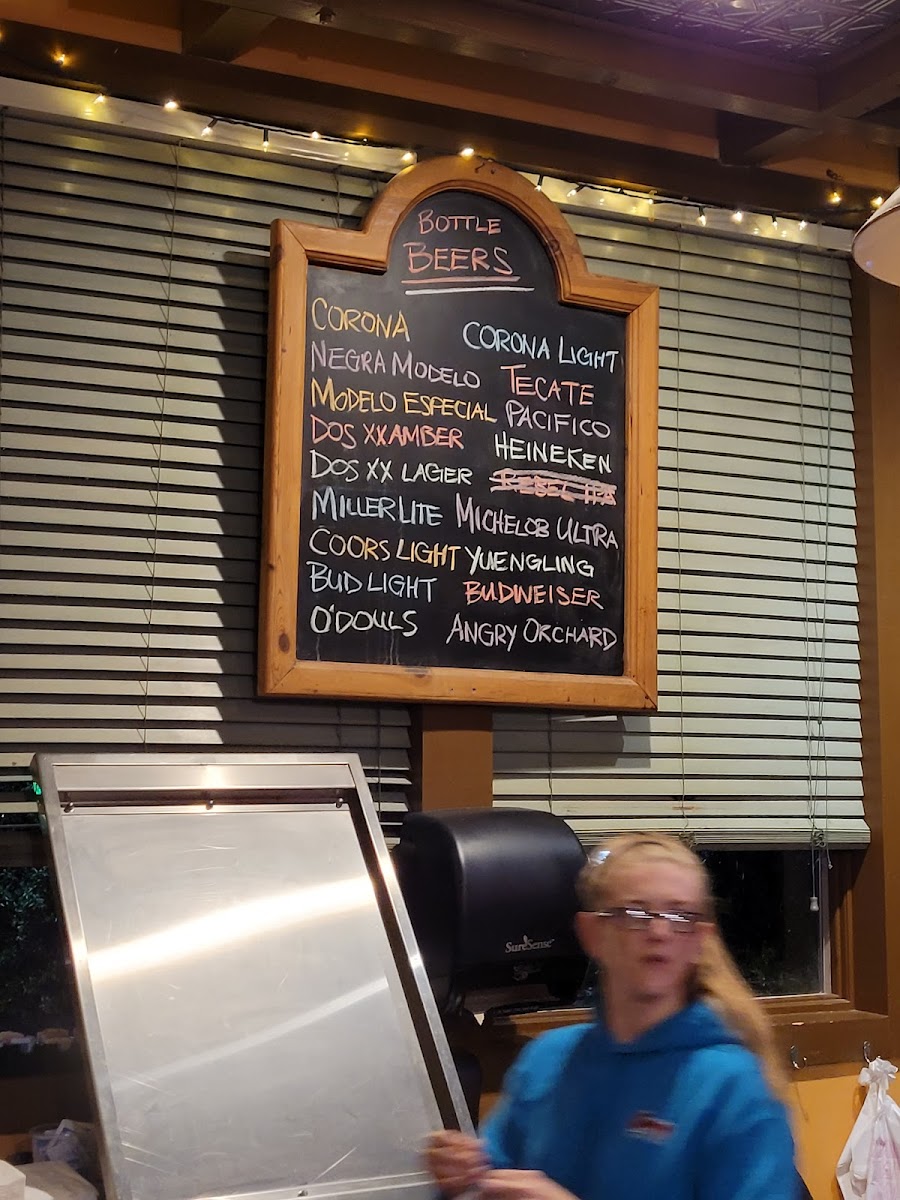 BOTTLE
BEERS
CORONA
NEGRA MODELO
MODELO ESPECIAL
DOS XX AMBER
DOS XX LAGER
MILLER LITE
COORS LIGHT
BUD LIGHT
O'DOULS
CORONA LIGHT
TECATE
PACIFICO
HEINEKEN
REBEL IPA
MICHELOB ULTRA
YUENGLING
BUDWEISER
ANGRY ORCHARD
SureSense